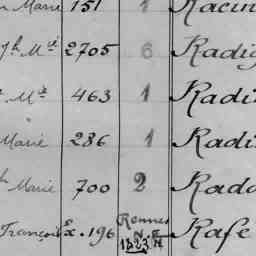 Marie 151 1 Racin
Jh Mie 2705 6 Radig
Mie 463 1 Radi
Marie 286 1 Radi
Marie 700 2 Rado
François Ex. 196 Rennes 1823 Rafe